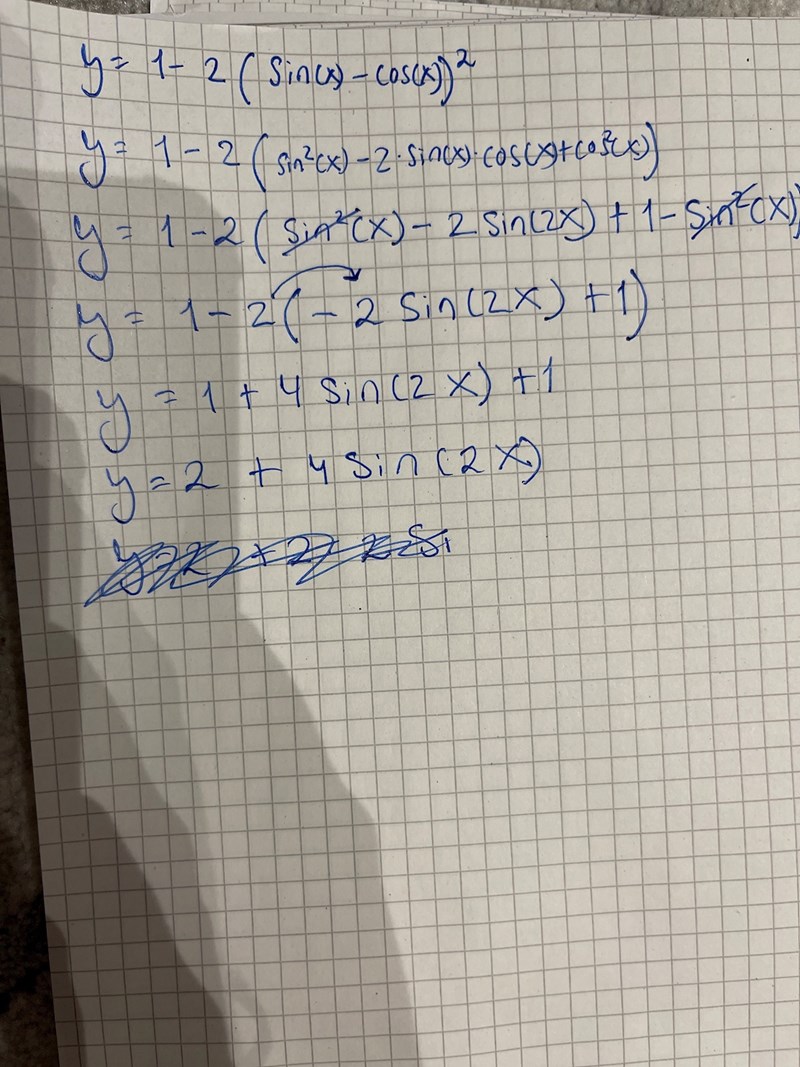 y = 1 - 2 (sin(x) - cos(x))²
y = 1 - 2 (sin²(x) - 2·sin(x)·cos(x) + cos²(x))
y = 1 - 2 (sin²(x) - 2 sin(2x) + 1 - sin²(x))
y = 1 - 2 (- 2 sin(2x) + 1)
y = 1 + 4 sin(2x) + 1
y = 2 + 4 sin(2x)